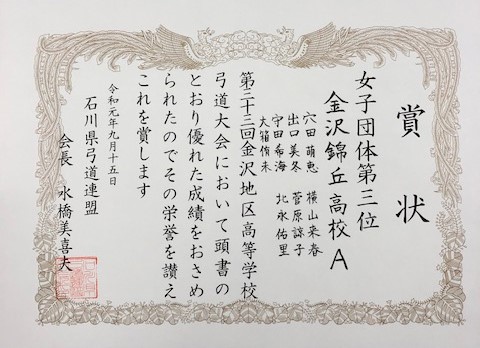 賞状
女子団体第三位
金沢錦丘高校A
穴田萌恵 横山来春
出口美冬 菅原諒子
守田希海 北永佑里
大箱侑未
第三十三回金沢地区高等学校
弓道大会において頭書の
とおり優れた成績をおさめ
られたのでその栄誉を讃え
これを賞します
令和元年九月十五日
石川県弓道連盟
会長 水橋美喜夫